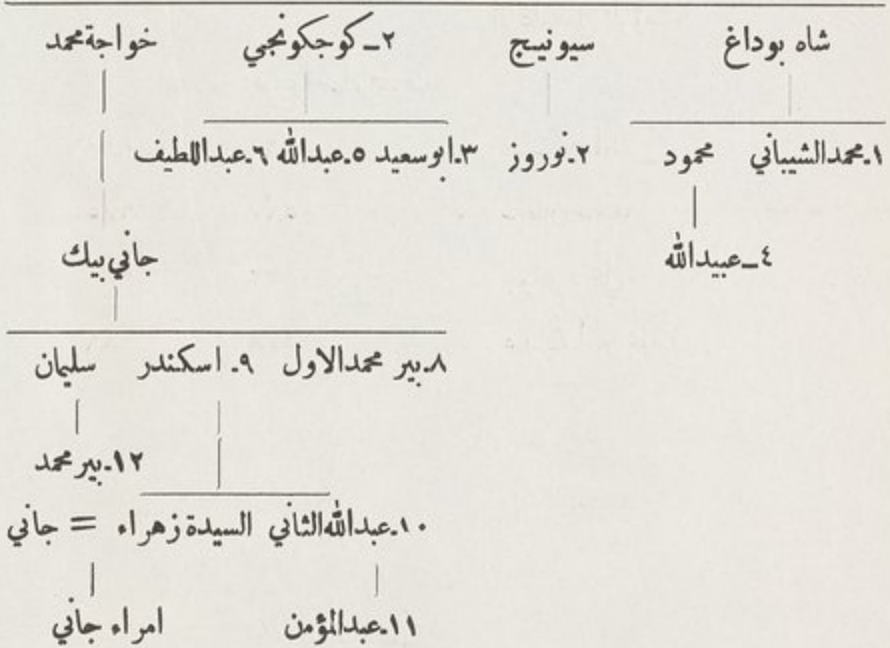 شاه بوداغ سيونيج ٢ـ كوجكونجي خواجة محمد
١.محمد الشيباني محمود ٢.نوروز ٣.ابوسعيد ٥.عبدالله ٦.عبداللطيف
٤ـ عبيدالله جاني بيك
٨.بير محمدالاول ٩. اسكندر سليمان
١٢.بير محمد
١٠.عبدالله الثاني السيدة زهراء = جاني
١١.عبدالمؤمن امراء جاني